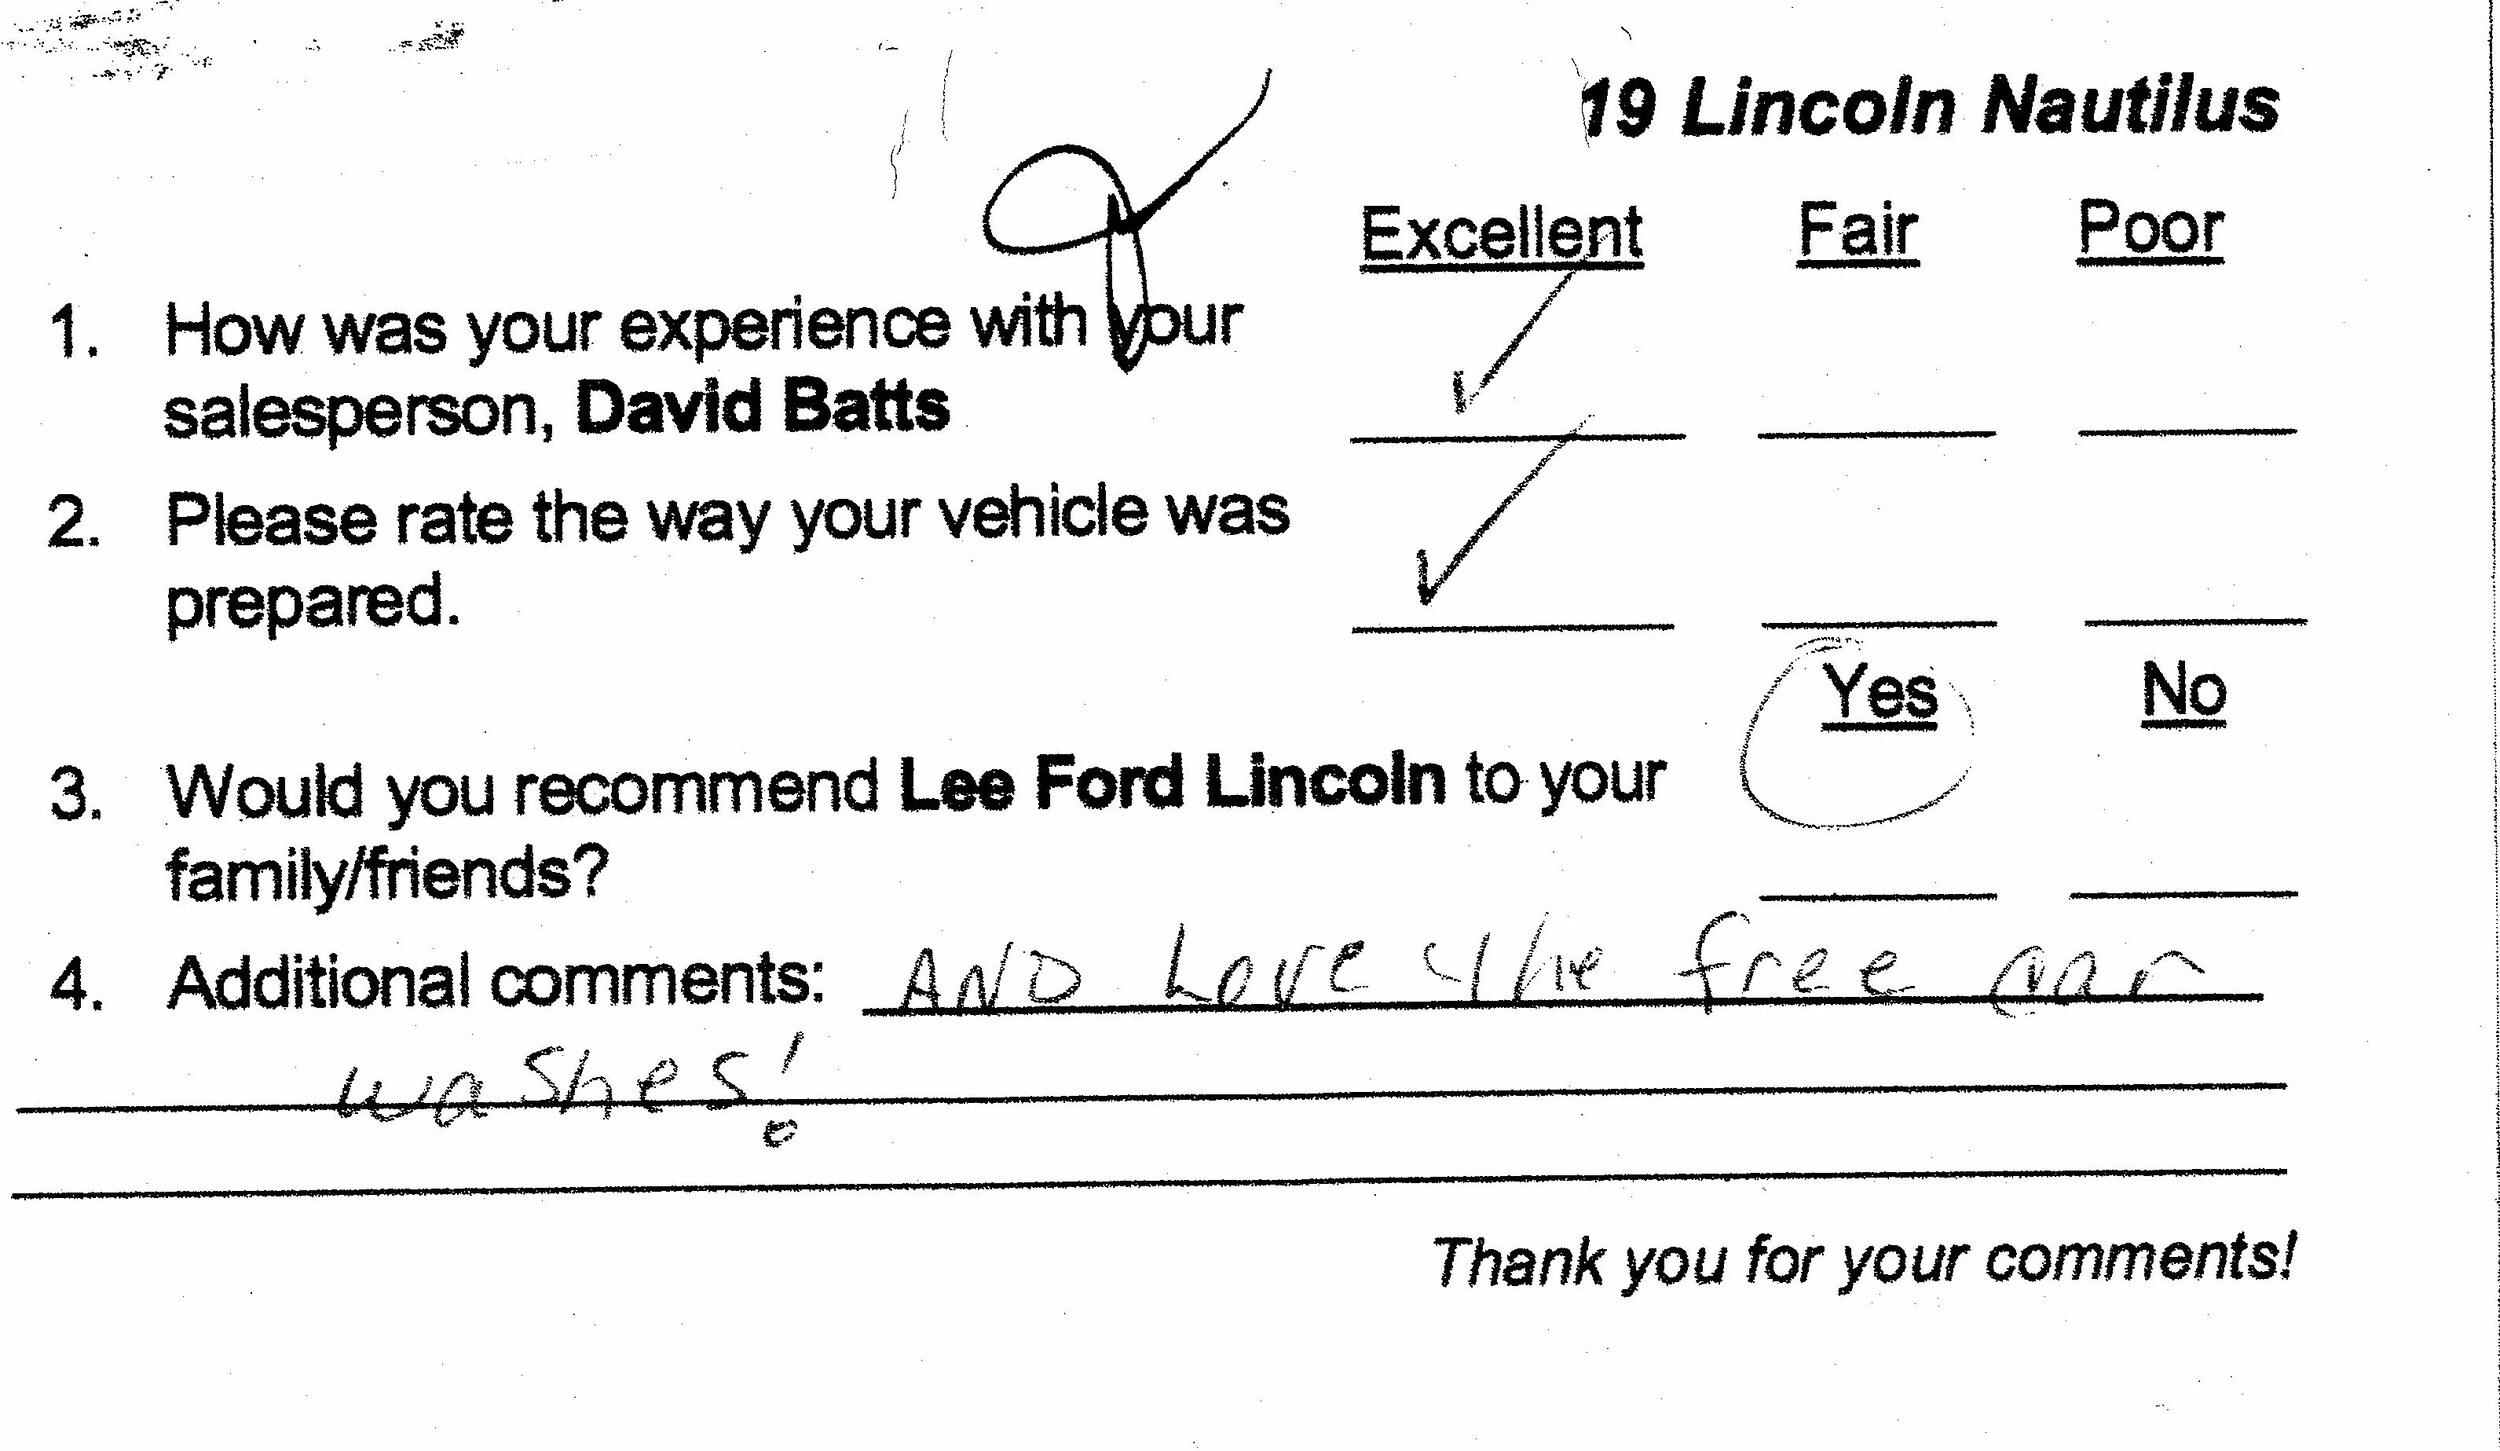 19 Lincoln Nautilus
Excellent Fair Poor
1. How was your experience with your
salesperson, David Batts
2. Please rate the way your vehicle was
prepared.
Yes No
3. Would you recommend Lee Ford Lincoln to your
family/friends?
4. Additional comments: AND Love the free car
washes!
Thank you for your comments!